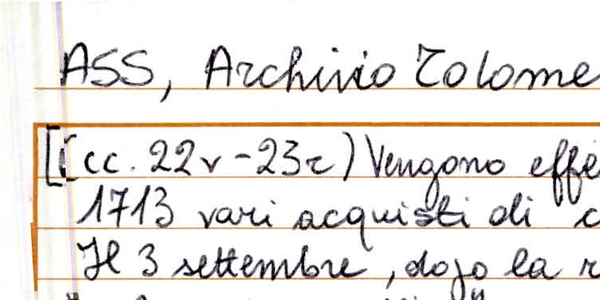 ASS, Archivio Tolome
[(cc. 22v-23r) Vengono effe
1713 vari acquisti di c
Il 3 settembre, dopo la r